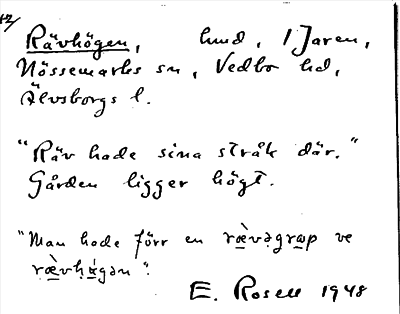 12/
Rävhögen, hmd, i Jaren,
Nössemarks sn, Vedbo hd,
Älvsborgs l.
"Räv hade sina stråk där."
Gården ligger högt.
"Man hade förr en ræ̀vəgrɒp ve
ræ̀vhǿgən".
E. Rosell 1948